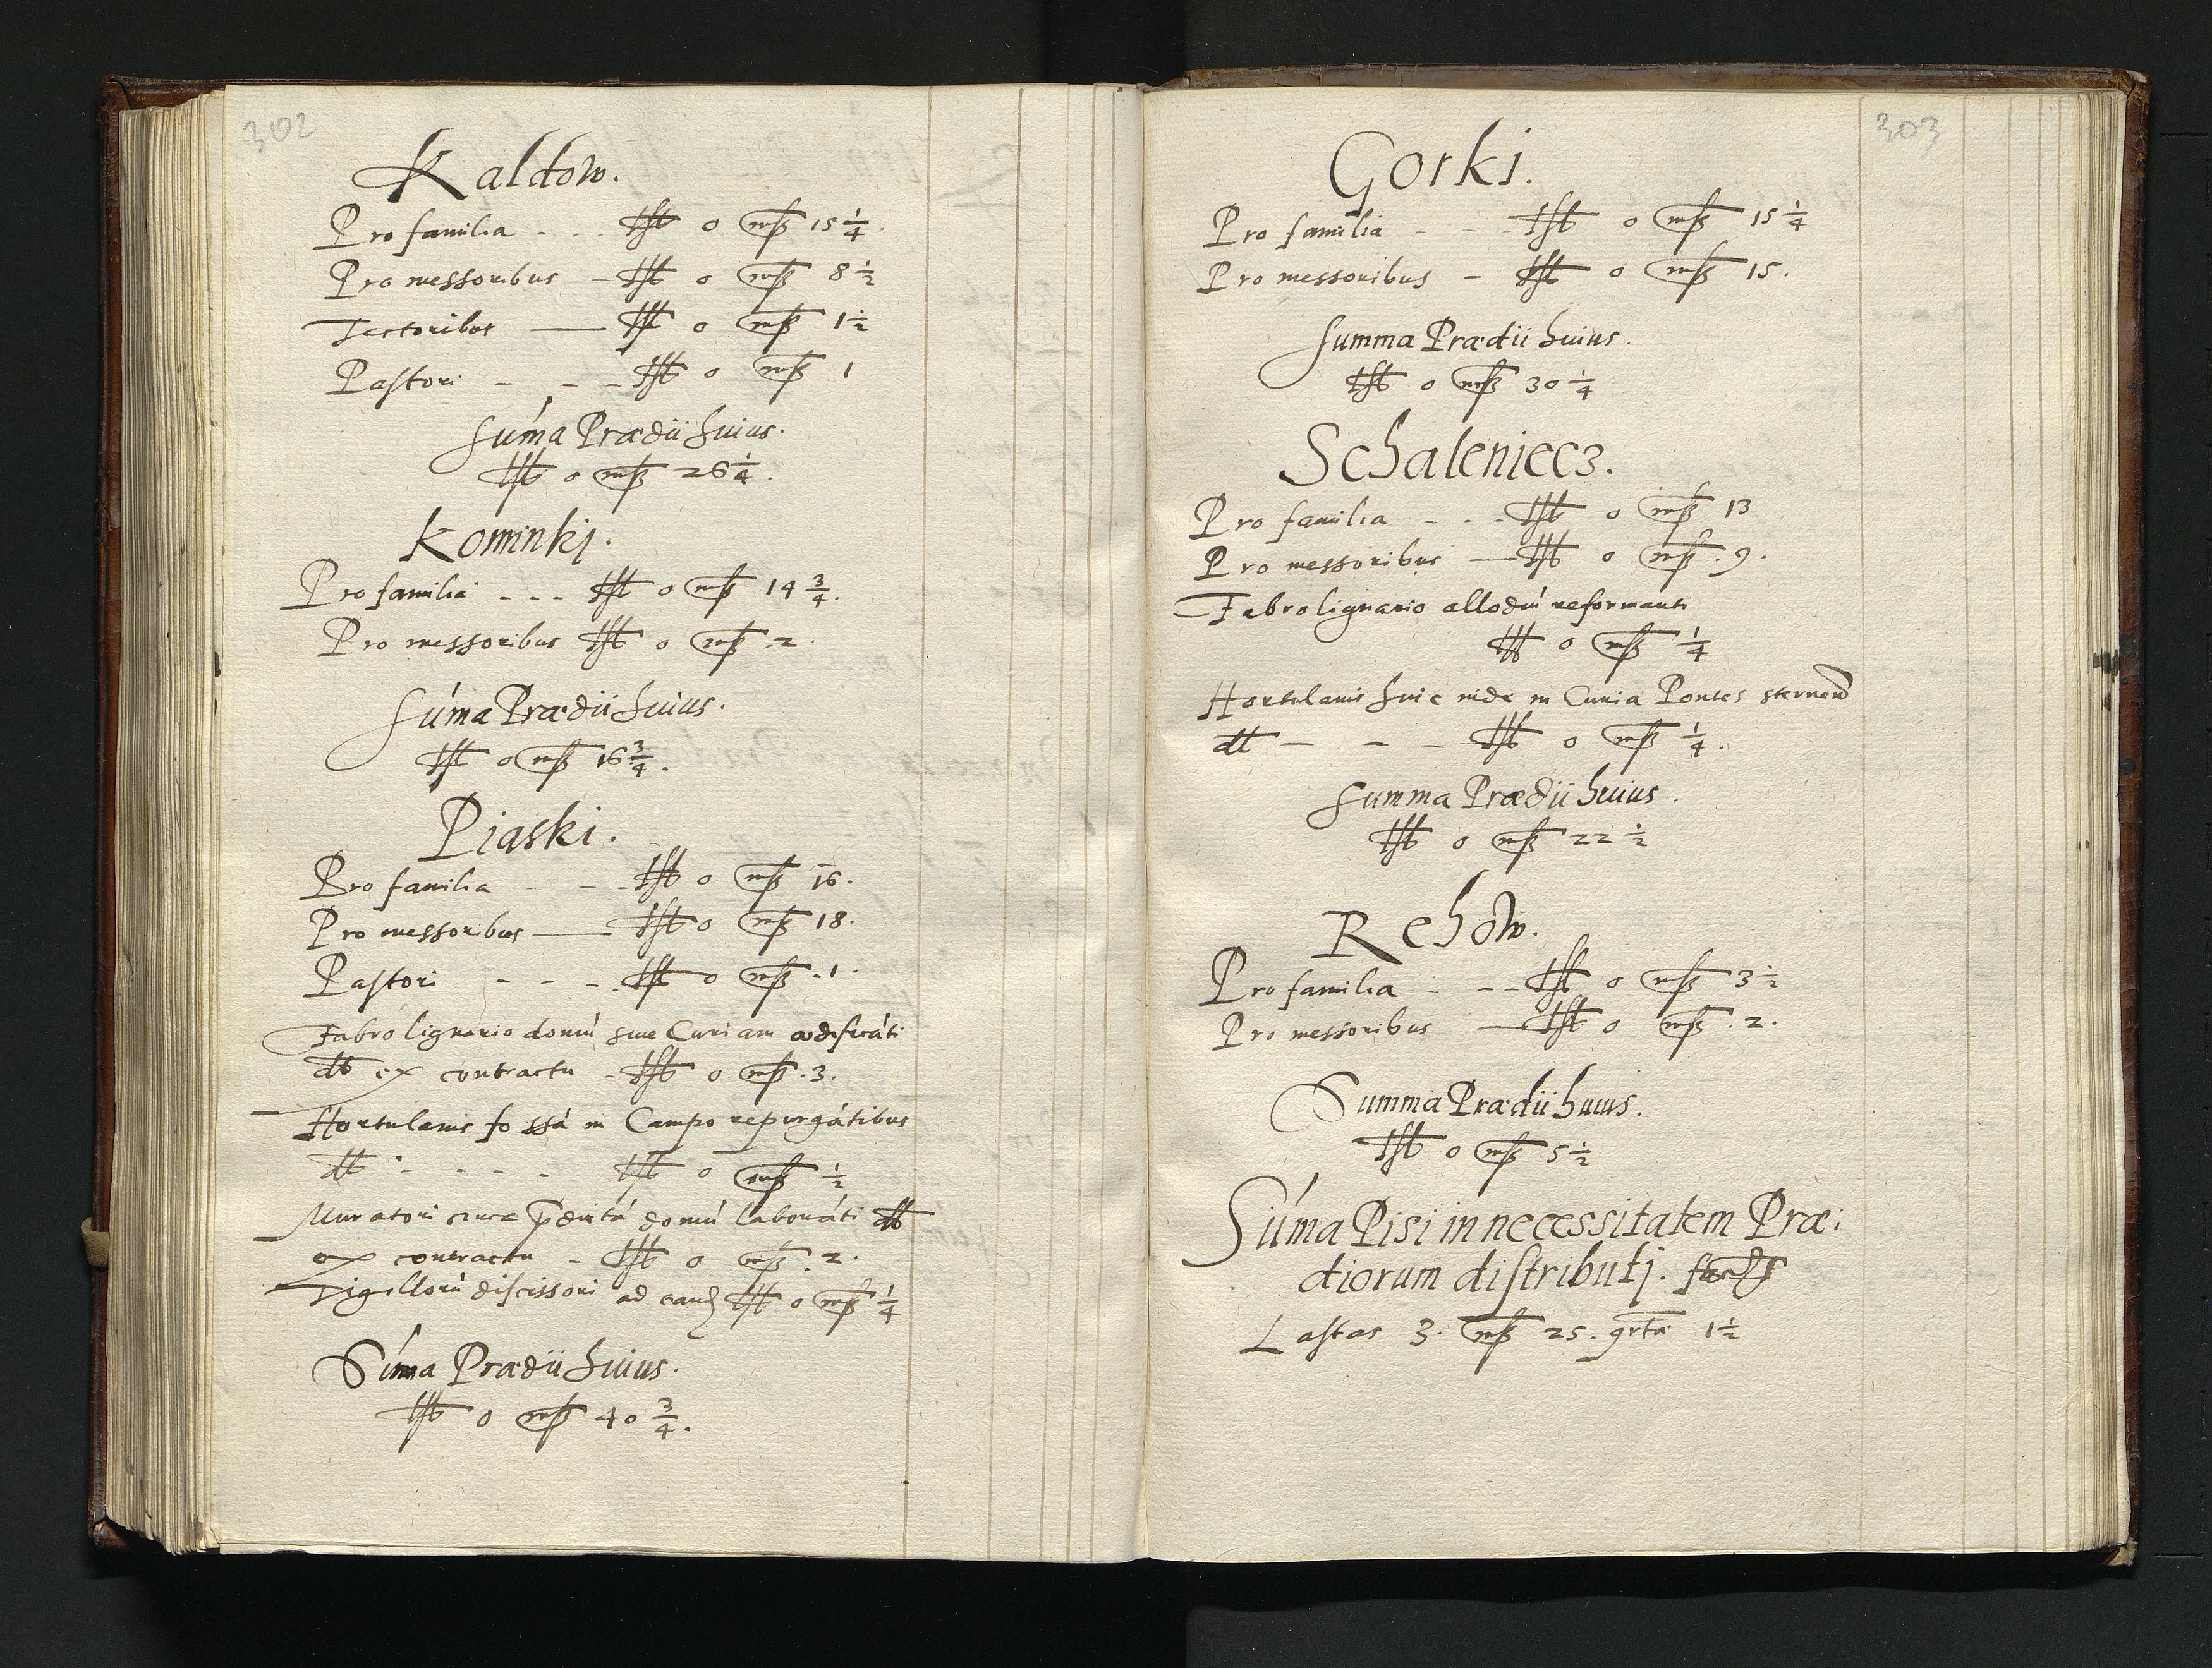 302
Kaldow.
Pro familia - - - Lst 0 mß 15 1/4.
Pro messoribus - Lst 0 mß 8 1/2
Tectoribus — Lst 0 mß 1 1/2
Pastori - - - Lst 0 mß 1
Sum̄a Prædii huius.
Lst 0 mß 26 1/4.
Kominkj.
Pro familia - - - Lst 0 mß 14 3/4.
Pro messoribus Lst 0 mß 2
Sum̄a Prædii huius.
Lst 0 mß 16 3/4.
Piaski.
Pro familia - - - Lst 0 mß 16.
Pro messoribus — Lst 0 mß 18.
Pastori - - - Lst 0 mß 1.
Fabro lignario domū siue Curiam ædificāti
dt ex contractu - Lst 0 mß 3.
Hortulanis fossā in Campo repurgātibus
dt - - - - Lst 0 mß 1/2
Muratori circa p̄dictā domū laborāti dt
ex contractu - Lst 0 mß 2.
Tigillorū discissori ad eand Lst 0 mß 1/4
Sum̄a Prædii huius.
Lst 0 mß 40 3/4.
303
Gorki.
Pro familia - - - Lst 0 mß 15 1/4
Pro messoribus - Lst 0 mß 15.
Summa Prædii huius.
Lst 0 mß 30 1/4
Schaleniecz.
Pro familia - - - Lst 0 mß 13
Pro messoribus — Lst 0 mß 9.
Fabro lignario allodiū reformanti
Lst 0 mß 1/4
Hortulanis in Curia Pontes sternen
dt - - - Lst 0 mß 1/4.
Summa Prædii huius.
Lst 0 mß 22 1/2
Rehow.
Pro familia - - - Lst 0 mß 3 1/2
Pro messoribus — Lst 0 mß 2.
Summa Prædii huius.
Lst 0 mß 5 1/2
Sum̄a Pisi in necessitatem Præ:
diorum distributj.
Lastas 3. mß 25. grta 1 1/2